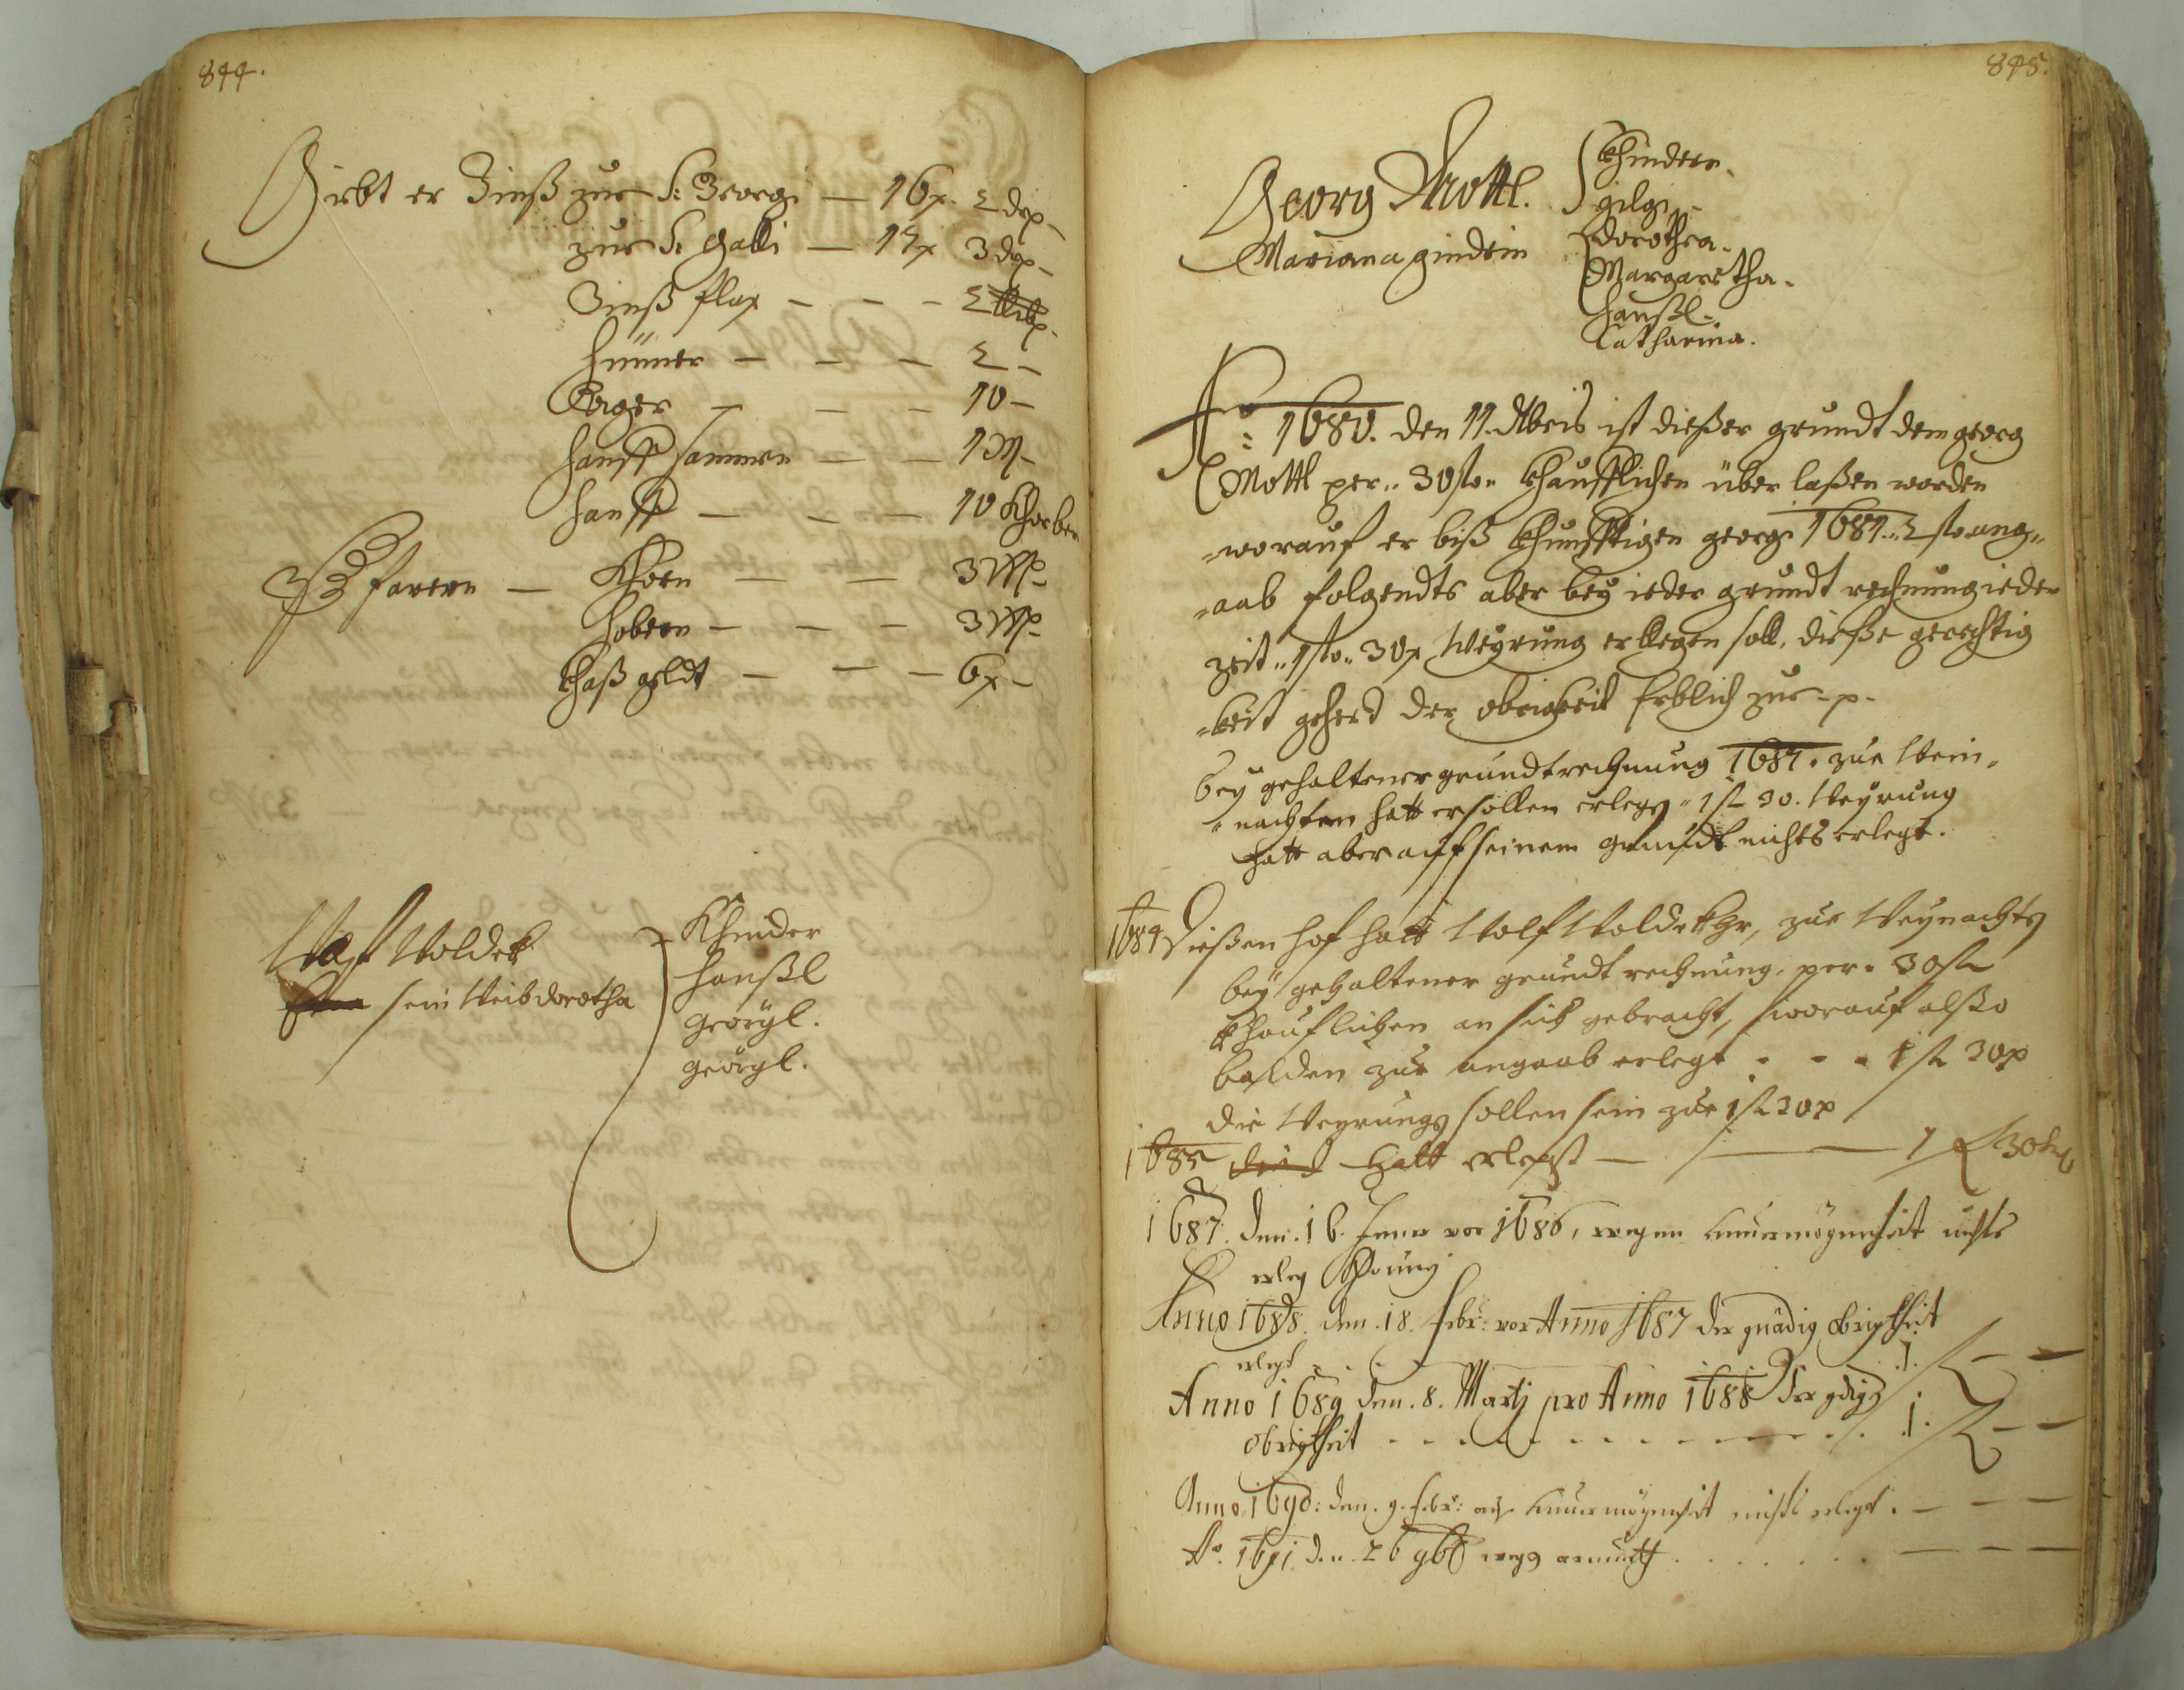 844.
Girbt er Zinß zur S: Georgi — 16x. 2 dx
zur S: Galli — 17x 3 dx
Zinß flax — — — 2
Hünner — — — 2 —
Ayer — — — 10 —
Hanff Sammen — — 1 M
Hanff — — — 10
Pfarern — Khorn — — 3
Habern — — — 3
Khaß geldt — — — 6x —
Wolf Woldek
sein Weib Dorotha
Khinder
Hanßl
Geörgl.
Geörgl.
845.
Georg Mottl.
Mariana Gindrin
Khinder.
Gilgi
Dorothea.
Margaretha.
Hanßl.
Catharina.
Ao: 1680. den 11. Xbris ist dießer grundt dem georg
Mottl per 30 ßo khaufflichen über laßen worden
worauf er biß khunfftigen georgi 1681 2 ßo ang
aab folgendts aber bey ieder grundt rechnung ieder
zeit 1 ßo 30x Weyrung erllegen soll, dieße gerechtig
keit geherd der obrigkeit Erblich zue p
bey gehaltener grundtrechnung 1681. zue Wein
nachten hatt er sollen erlegn 1 ß 30. Weyrung
hatt aber auff seinem grundt nichts erlegt.
1684 Dießen hof hatt Wolf Woldekhr, zue Weynachtn
bey gehaltener grundt rechnung, per 30 ß
khauflichen an sich gebracht, worauf alßo
balden zur angaab erlegt . . . 1 ß 30x
die Weyrungn sollen sein zue 1 ß 30x
1685 hatt erlegt — — 1 ß 30 kr
1687. den. 16. Jener vor 1686, wegen unuermögenheit nichts
erleg
Anno 1688. den. 18. Febr: vor Anno 1687 der gnädig obrigkheit
erlegt . . . 1. ß — —
Anno 1689 den. 8. Martj pro Anno 1688 der gdign
obrigkheit . . . . . . . . . . . 1. ß — —
Anno 1690: den. 9. Febr: unuermögenheit nichts erlegt. — — —
Ao. 1691 den 26 9br wegn armuth . . . . . . — — —